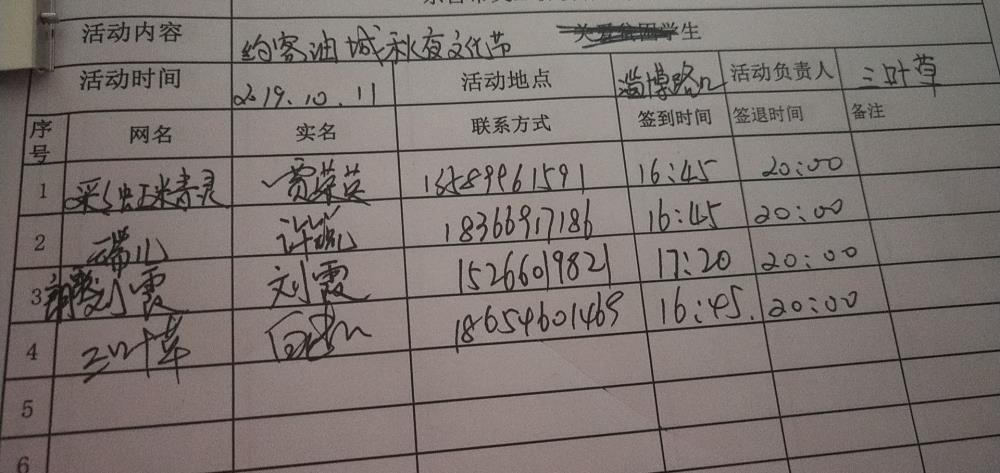 活动内容 约客油城秋夜文化节 生
活动时间 2019.10.11 活动地点 淄博路 活动负责人 三叶草
序号 网名 实名 联系方式 签到时间 签退时间 备注
1 彩虹精灵 贾荣英 16:45 20:00
2 云端儿 许 18366917186 16:45 20:00
3 刘霞 刘霞 15266019821 17:20 20:00
4 三叶草 18654601469 16:45. 20:00
5
6